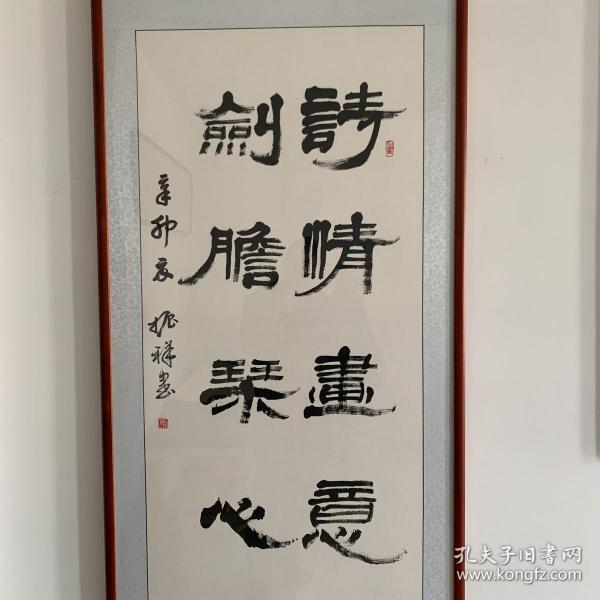 詩情畫意
劍膽琴心
辛卯夏 振祥書
孔夫子旧书网
www.kongfz.com